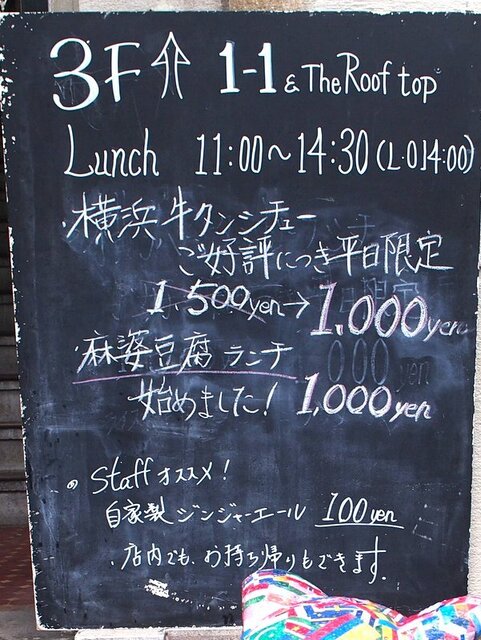 3F ↑ 1-1 & The Roof top
Lunch 11:00~14:30(L.O14:00)
・横浜牛タンシチュー
ご好評につき平日限定
1,500yen→1,000yen
・麻婆豆腐ランチ
始めました! 1,000yen
staffオススメ!
自家製ジンジャーエール 100yen
・店内でも、お持ち帰りもできます。